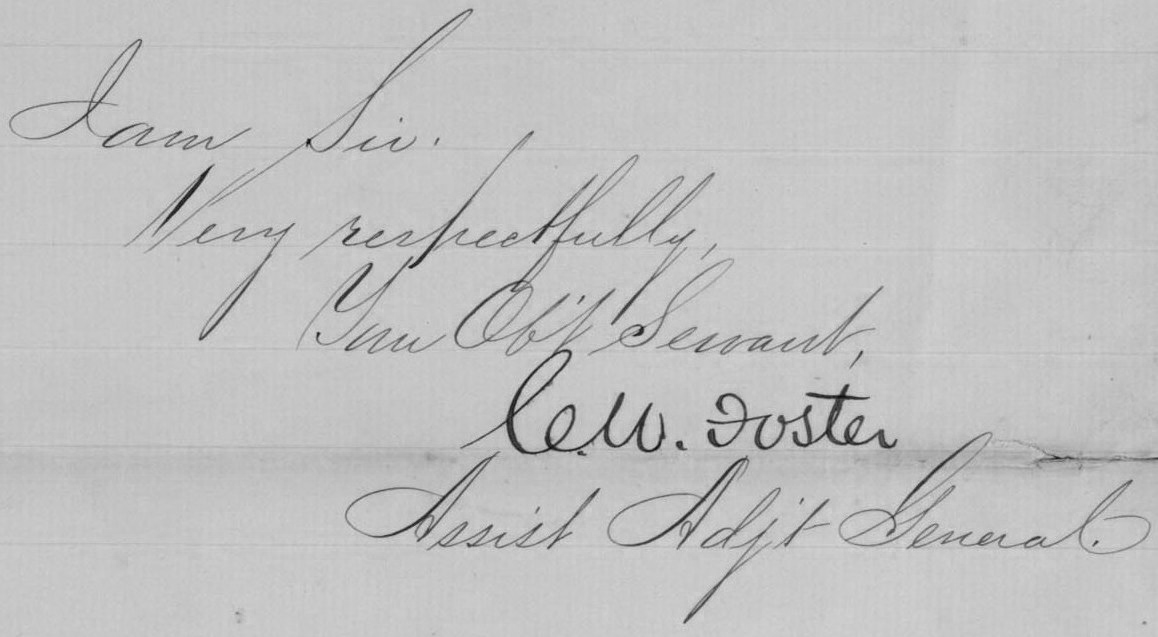 I am Sir.
Very respectfully,
Your Obt Servant,
C.W. Foster
Assist Adjt General.